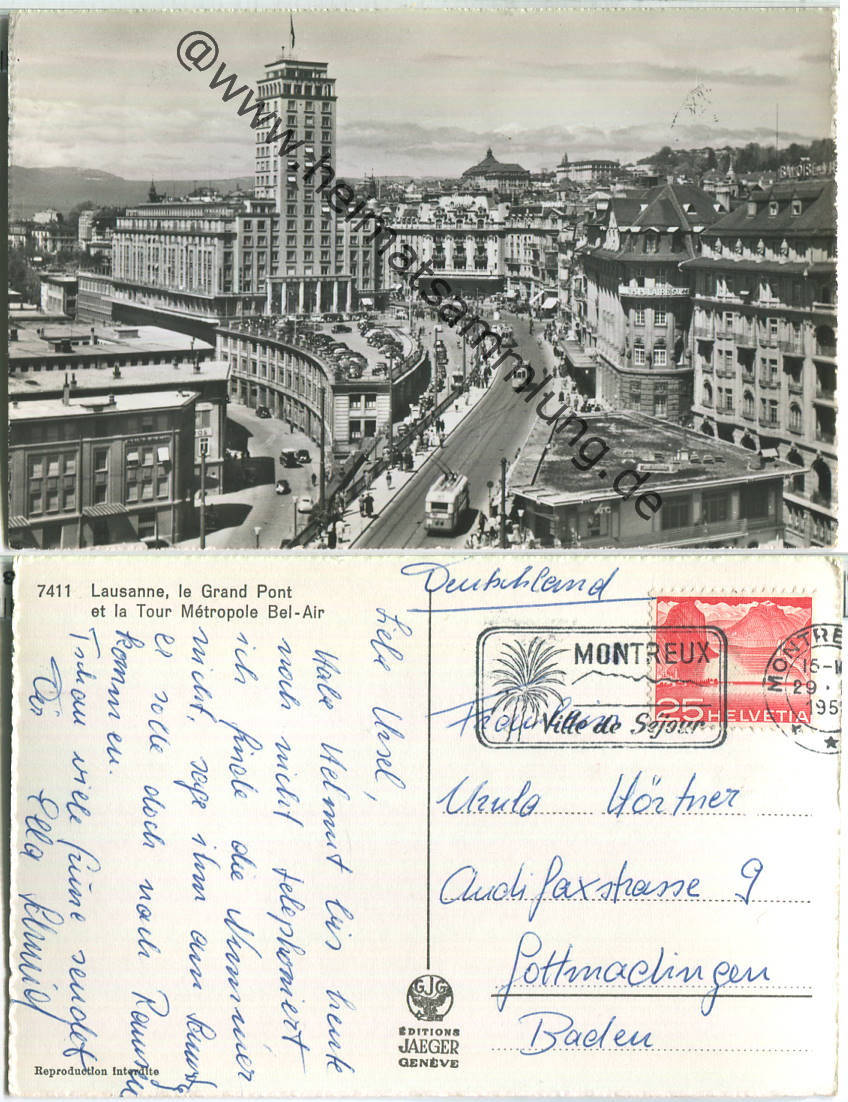 @www.heimatsammlung.de
7411 Lausanne, le Grand Pont
et la Tour Métropole Bel-Air
Deutschland
MONTREUX
Ville de Séjour
25 HELVETIA
MONTRE
15-
29.
195
Fräulein
Ursula Hörtner
Audifaxstrasse 9
Gottmadingen
Baden
Liebe Ursel,
Habe Helmut bis heute
noch nicht telephoniert
ich finde die Nummer
nicht, sage ihm
er solle doch nach
kommen.
Tschau viele Grüsse sendet
Dir Ella Schmid
GJG
ÉDITIONS
JAEGER
GENÈVE
Reproduction Interdite